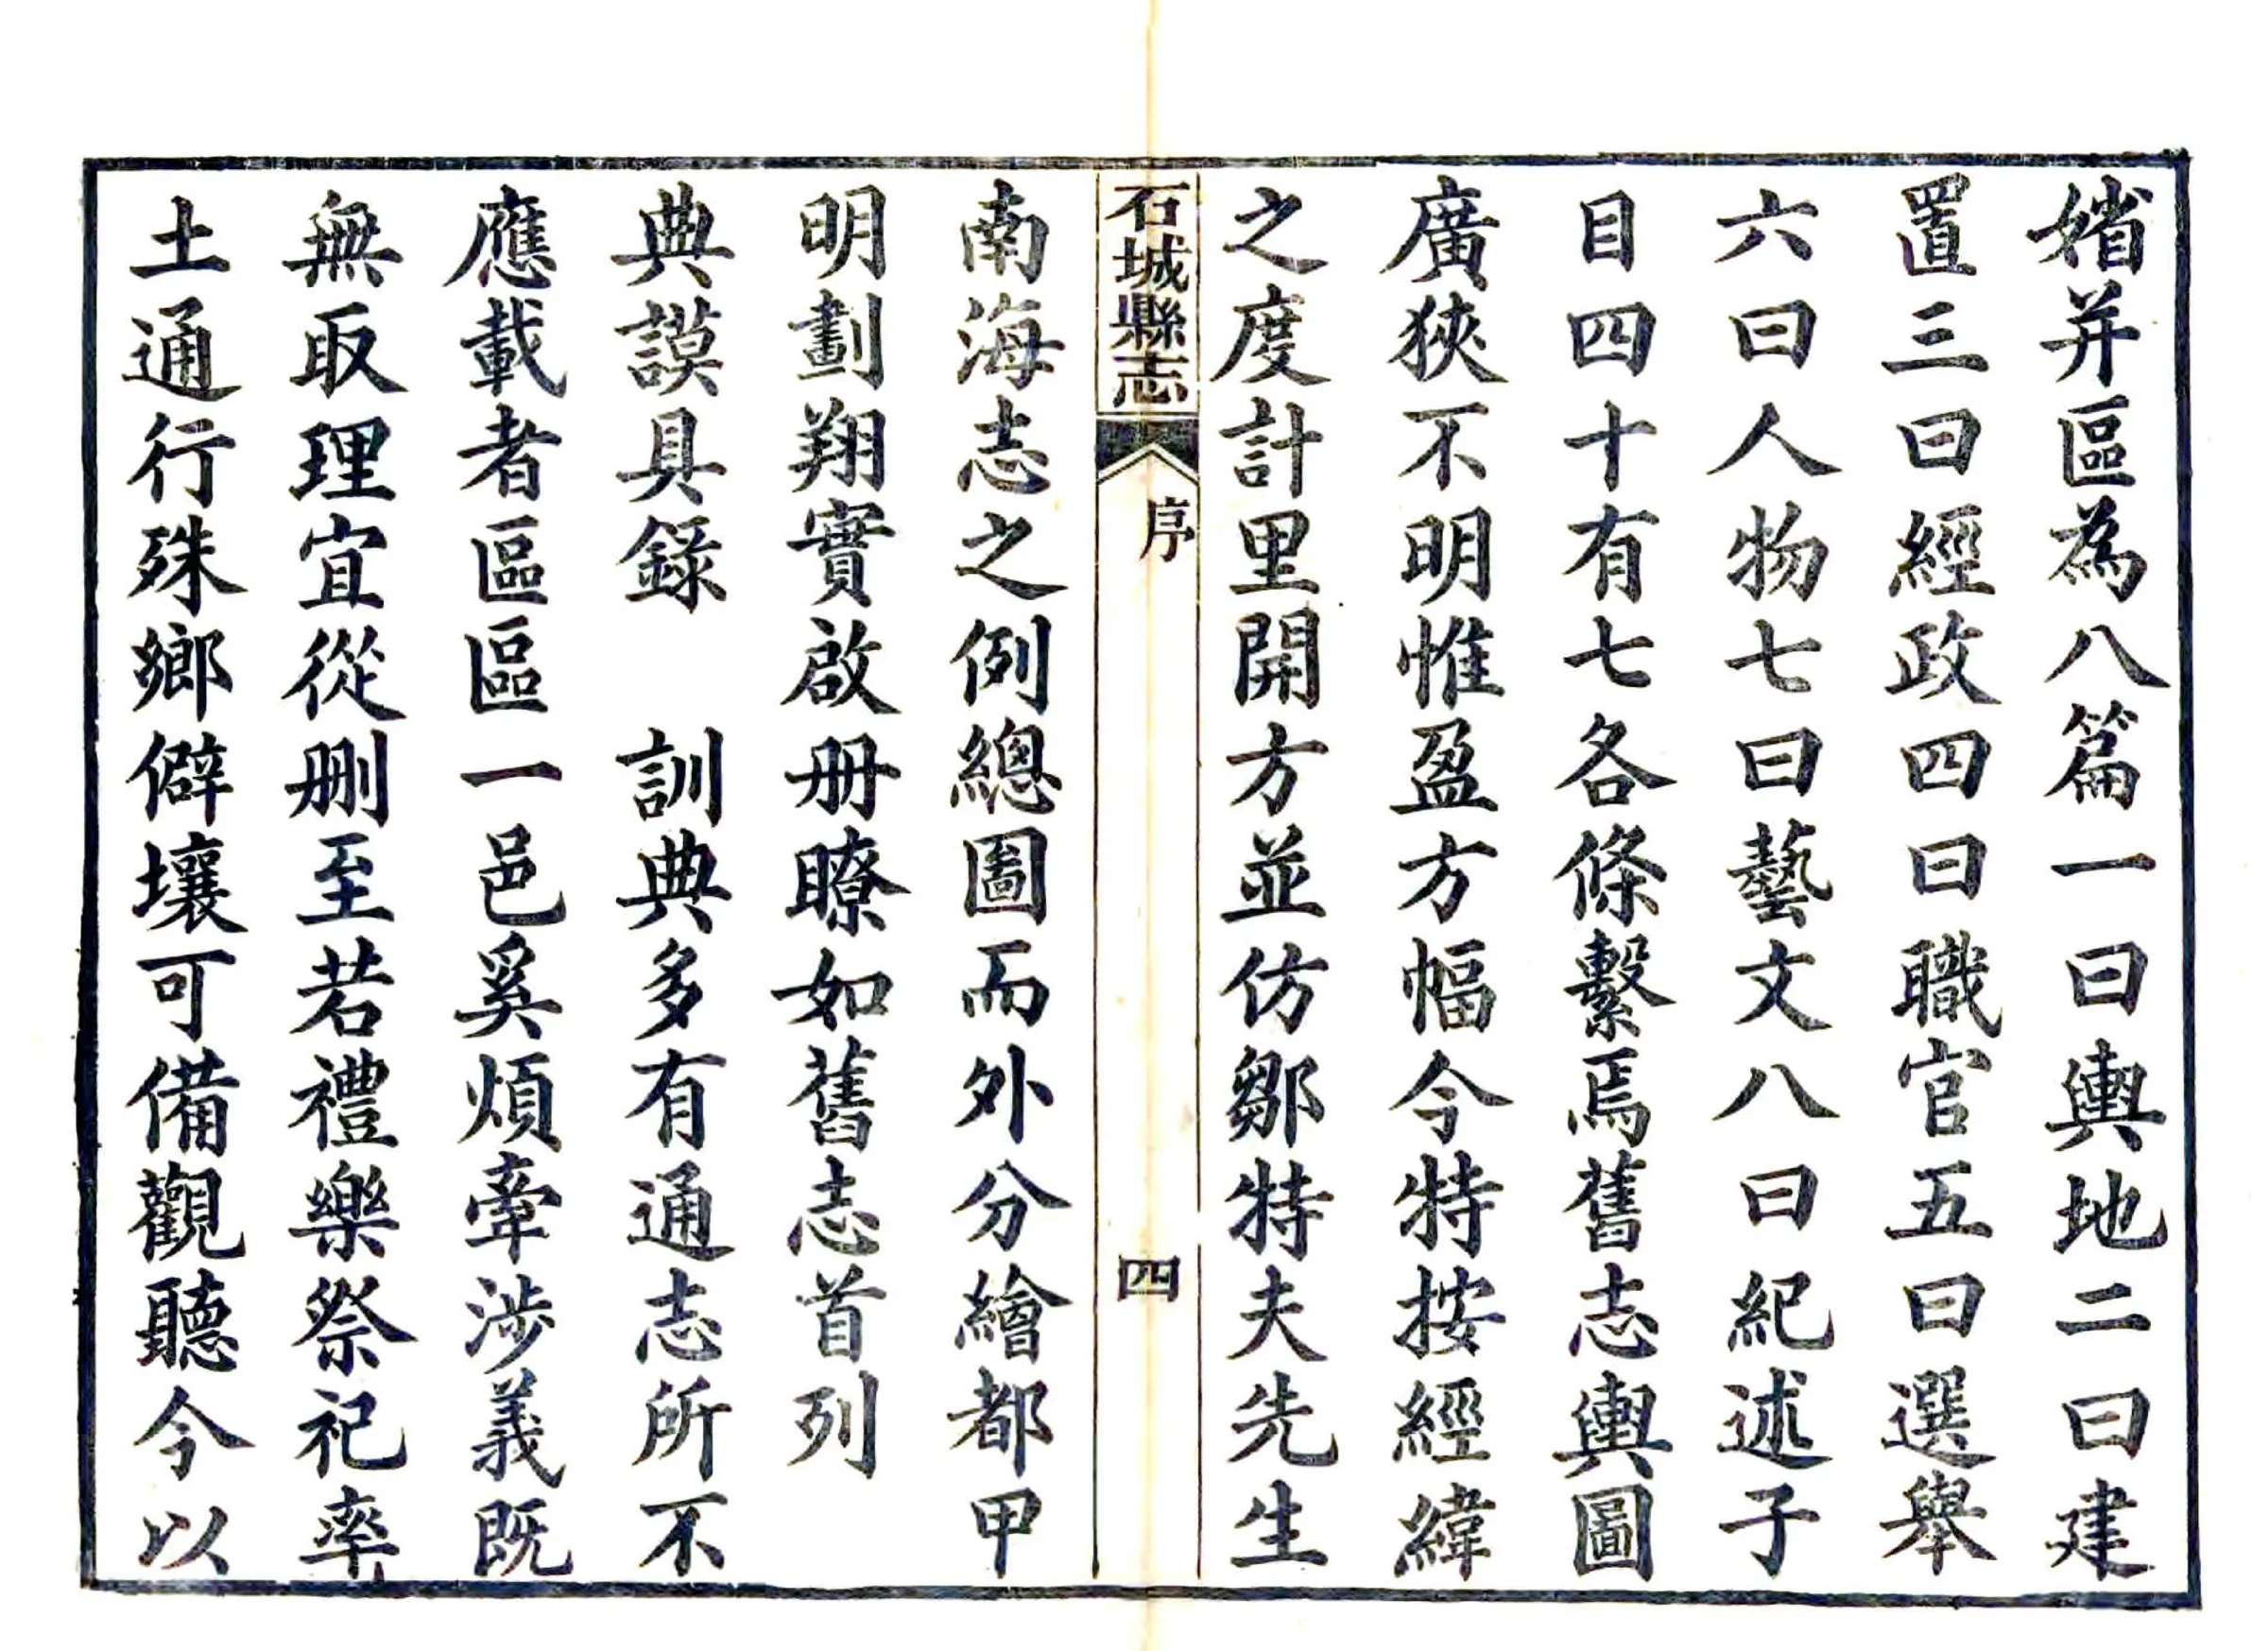 媘并區為八篇一曰輿地二曰建
置三曰經政四曰職官五曰選舉
六曰人物七曰藝文八曰紀述子
目四十有七各條繫焉舊志輿圖
廣狹不明惟盈方幅今特按經緯
之度計里開方並仿鄒特夫先生
石城縣志
序
四
南海志之例總圖而外分繪都甲
明劃翔實啟册瞭如舊志首列
典謨具錄　訓典多有通志所不
應載者區區一邑奚煩牽涉義既
無取理宜從刪至若禮樂祭祀率
土通行殊鄉僻壤可備觀聽今以